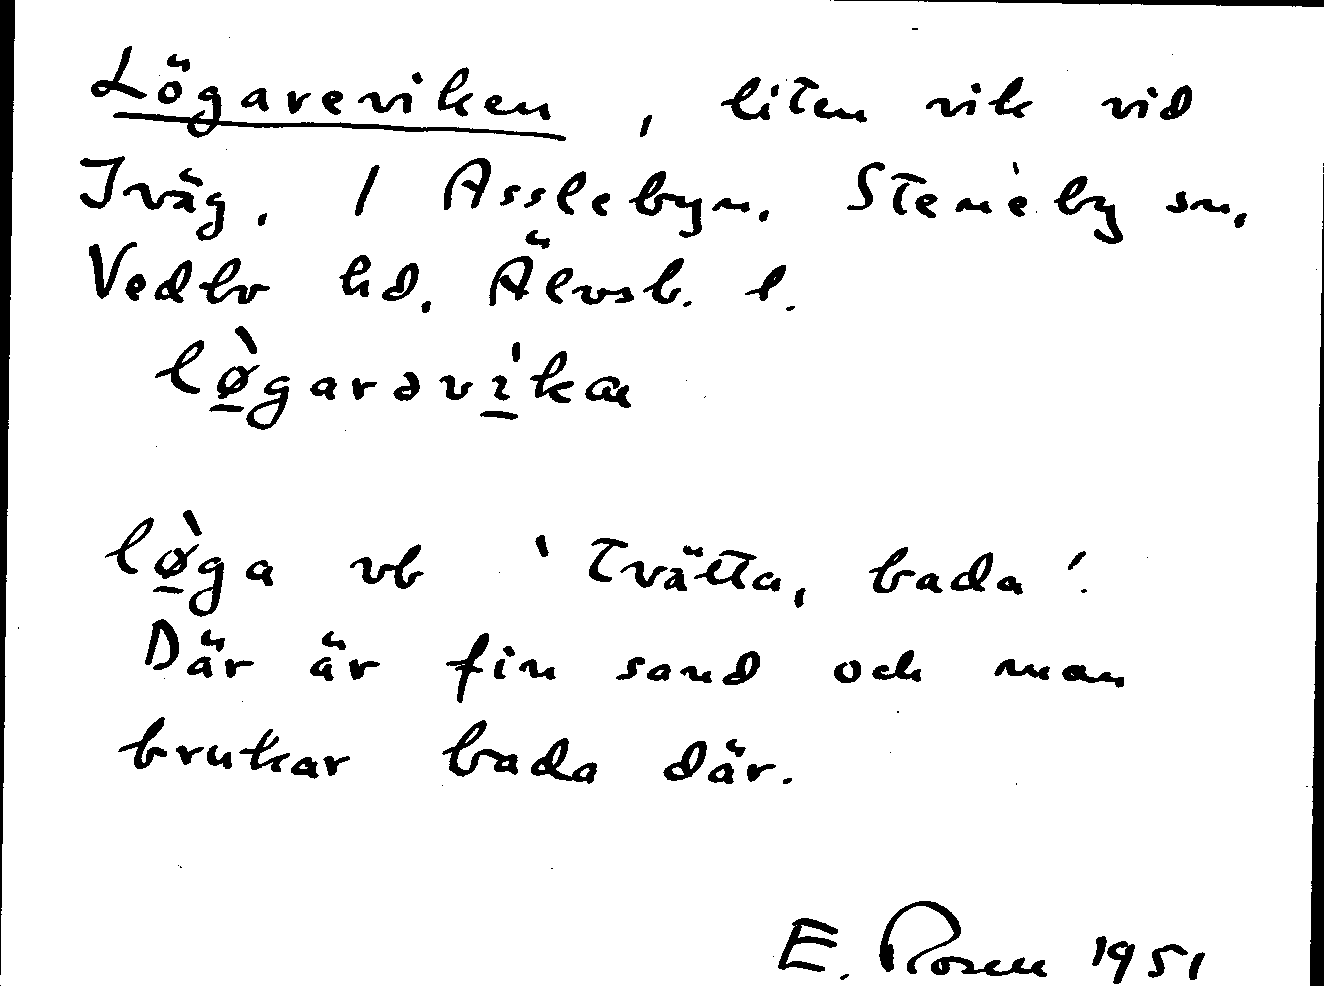 Lögareviken, liten vik vid
Iväg, 1 Asslebyn, Steneby sn,
Vedbo hd, Älvsb. l.
lø̀garəvíka
lø̀ga vb 'tvätta, bada'.
Där är fin sand och man
brukar bada där.
E. Rosen 1951